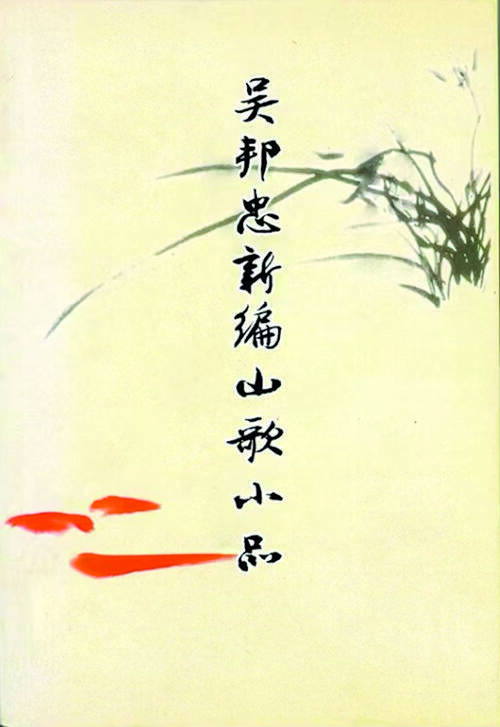 吴邦忠新编山歌小品